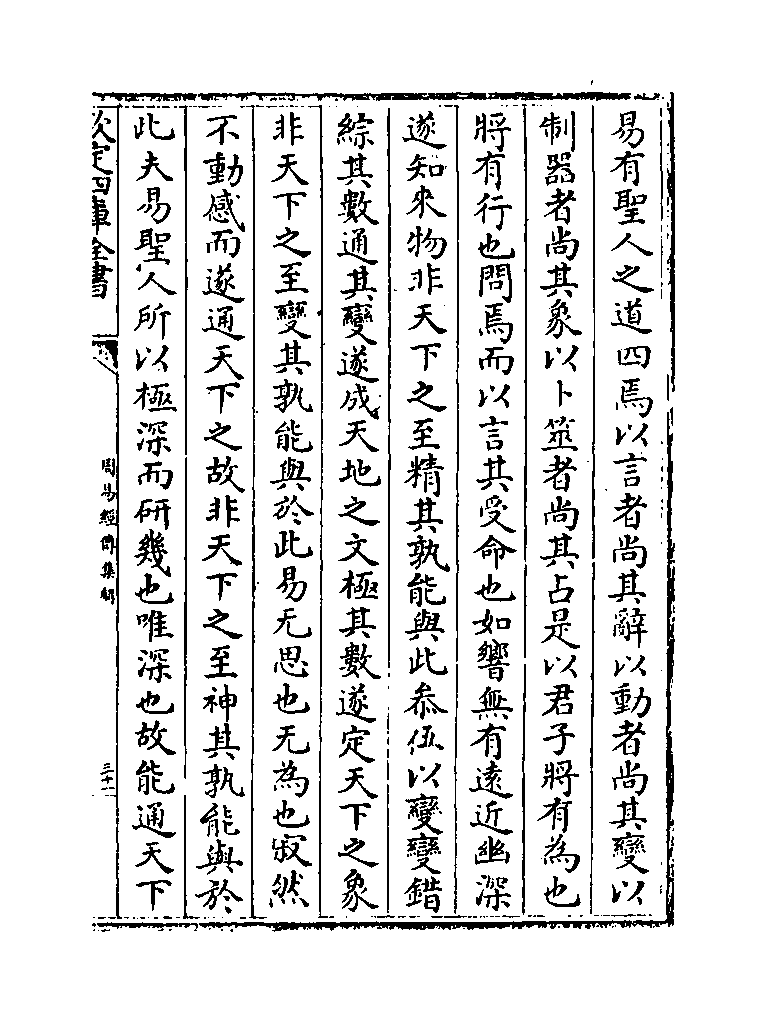 易有聖人之道四焉以言者尚其辭以動者尚其變以
制器者尚其象以卜筮者尚其占是以君子將有為也
將有行也問焉而以言其受命也如響無有遠近幽深
遂知來物非天下之至精其孰能與此叅伍以變變錯
綜其數通其變遂成天地之文極其數遂定天下之象
非天下之至變其孰能與於此易无思也无為也寂然
不動感而遂通天下之故非天下之至神其孰能與於
此夫易聖人所以極深而研幾也唯深也故能通天下
欽定四庫全書
周易經傳集解
三十一